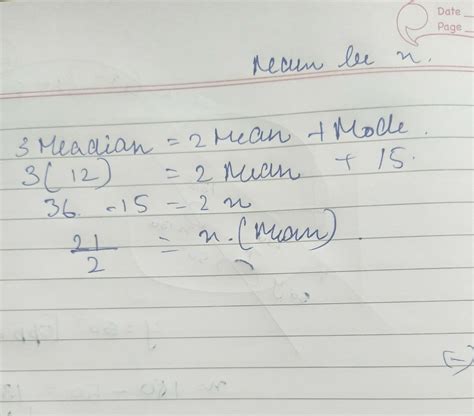 Date
Page
Mean be x.
3 Meadian = 2 Mean + Mode.
3(12) = 2 Mean + 15.
36 - 15 = 2x
21/2 = x. (Mean).
(-)